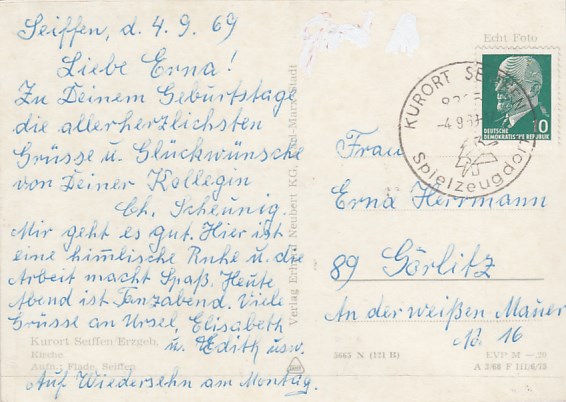 Seiffen, d. 4.9.69
Liebe Erna!
Zu Deinem Geburtstage
die allerherzlichsten
Grüsse u. Glückwünsche
von Deiner Kollegin
Ch. Scheunig.
Mir geht es gut. Hier ist
eine himmlische Ruhe u. die
Arbeit macht Spaß. Heute
Abend ist Tanzabend. Viele
Grüsse an Ursel, Elisabeth
u. Edith usw.
Auf Wiedersehn am Montag.
Kurort Seiffen/Erzgeb.
Kirche
Aufn.: Flade, Seiffen
Verlag Erhard Neubert KG, Karl-Marx-Stadt
Echt Foto
KURORT SEIFFEN
-4.9.69
Spielzeugdorf
DEUTSCHE
DEMOKRATISCHE REPUBLIK
10
Frau
Erna Herrmann
89 Görlitz
An der weißen Mauer
No. 16
5663 N (121 II)
EVP M -,20
A 2/68 F 111/6/15